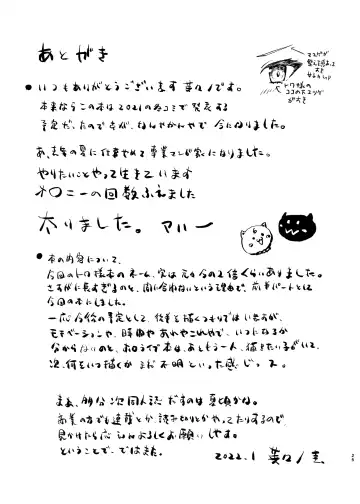 あとがき
マユゲが
トワ様の
ココのナミダ
がすき
●いつもありがとうございます 葵々ノです。
本来ならこの本は2021の冬コミで発表する
予定だったのですが、なんやかんやで 今になりました。
あ、去年の夏に仕事やめて専業マンガ家になりました。
やりたいことやって生きています
オロニーの回数ふえました
太りました。アハハー
●本の内容について、
今回のトワ様本のネーム、実は元々今の2倍くらいありました。
さすがに長すぎるのと、間に合わないという理由で、前半パートとして
今回の本にしました。
一応今後の予定として、後半を描くつもりではいますが、
モチベーションや、時間や あれやこれやで、いつになるか
分からないのと、ホロライブ本は、あともう一人、描きたい子がいて、
次、何をいつ描くか まだ不明といった感じっス。
まぁ、多分 次同人誌だすのは夏頃かな。
商業の方でも連載とか、読み切りとかやってたりするので、
見かけたら応援よろしくお願いします。
ということで、ではまた。
2022.1